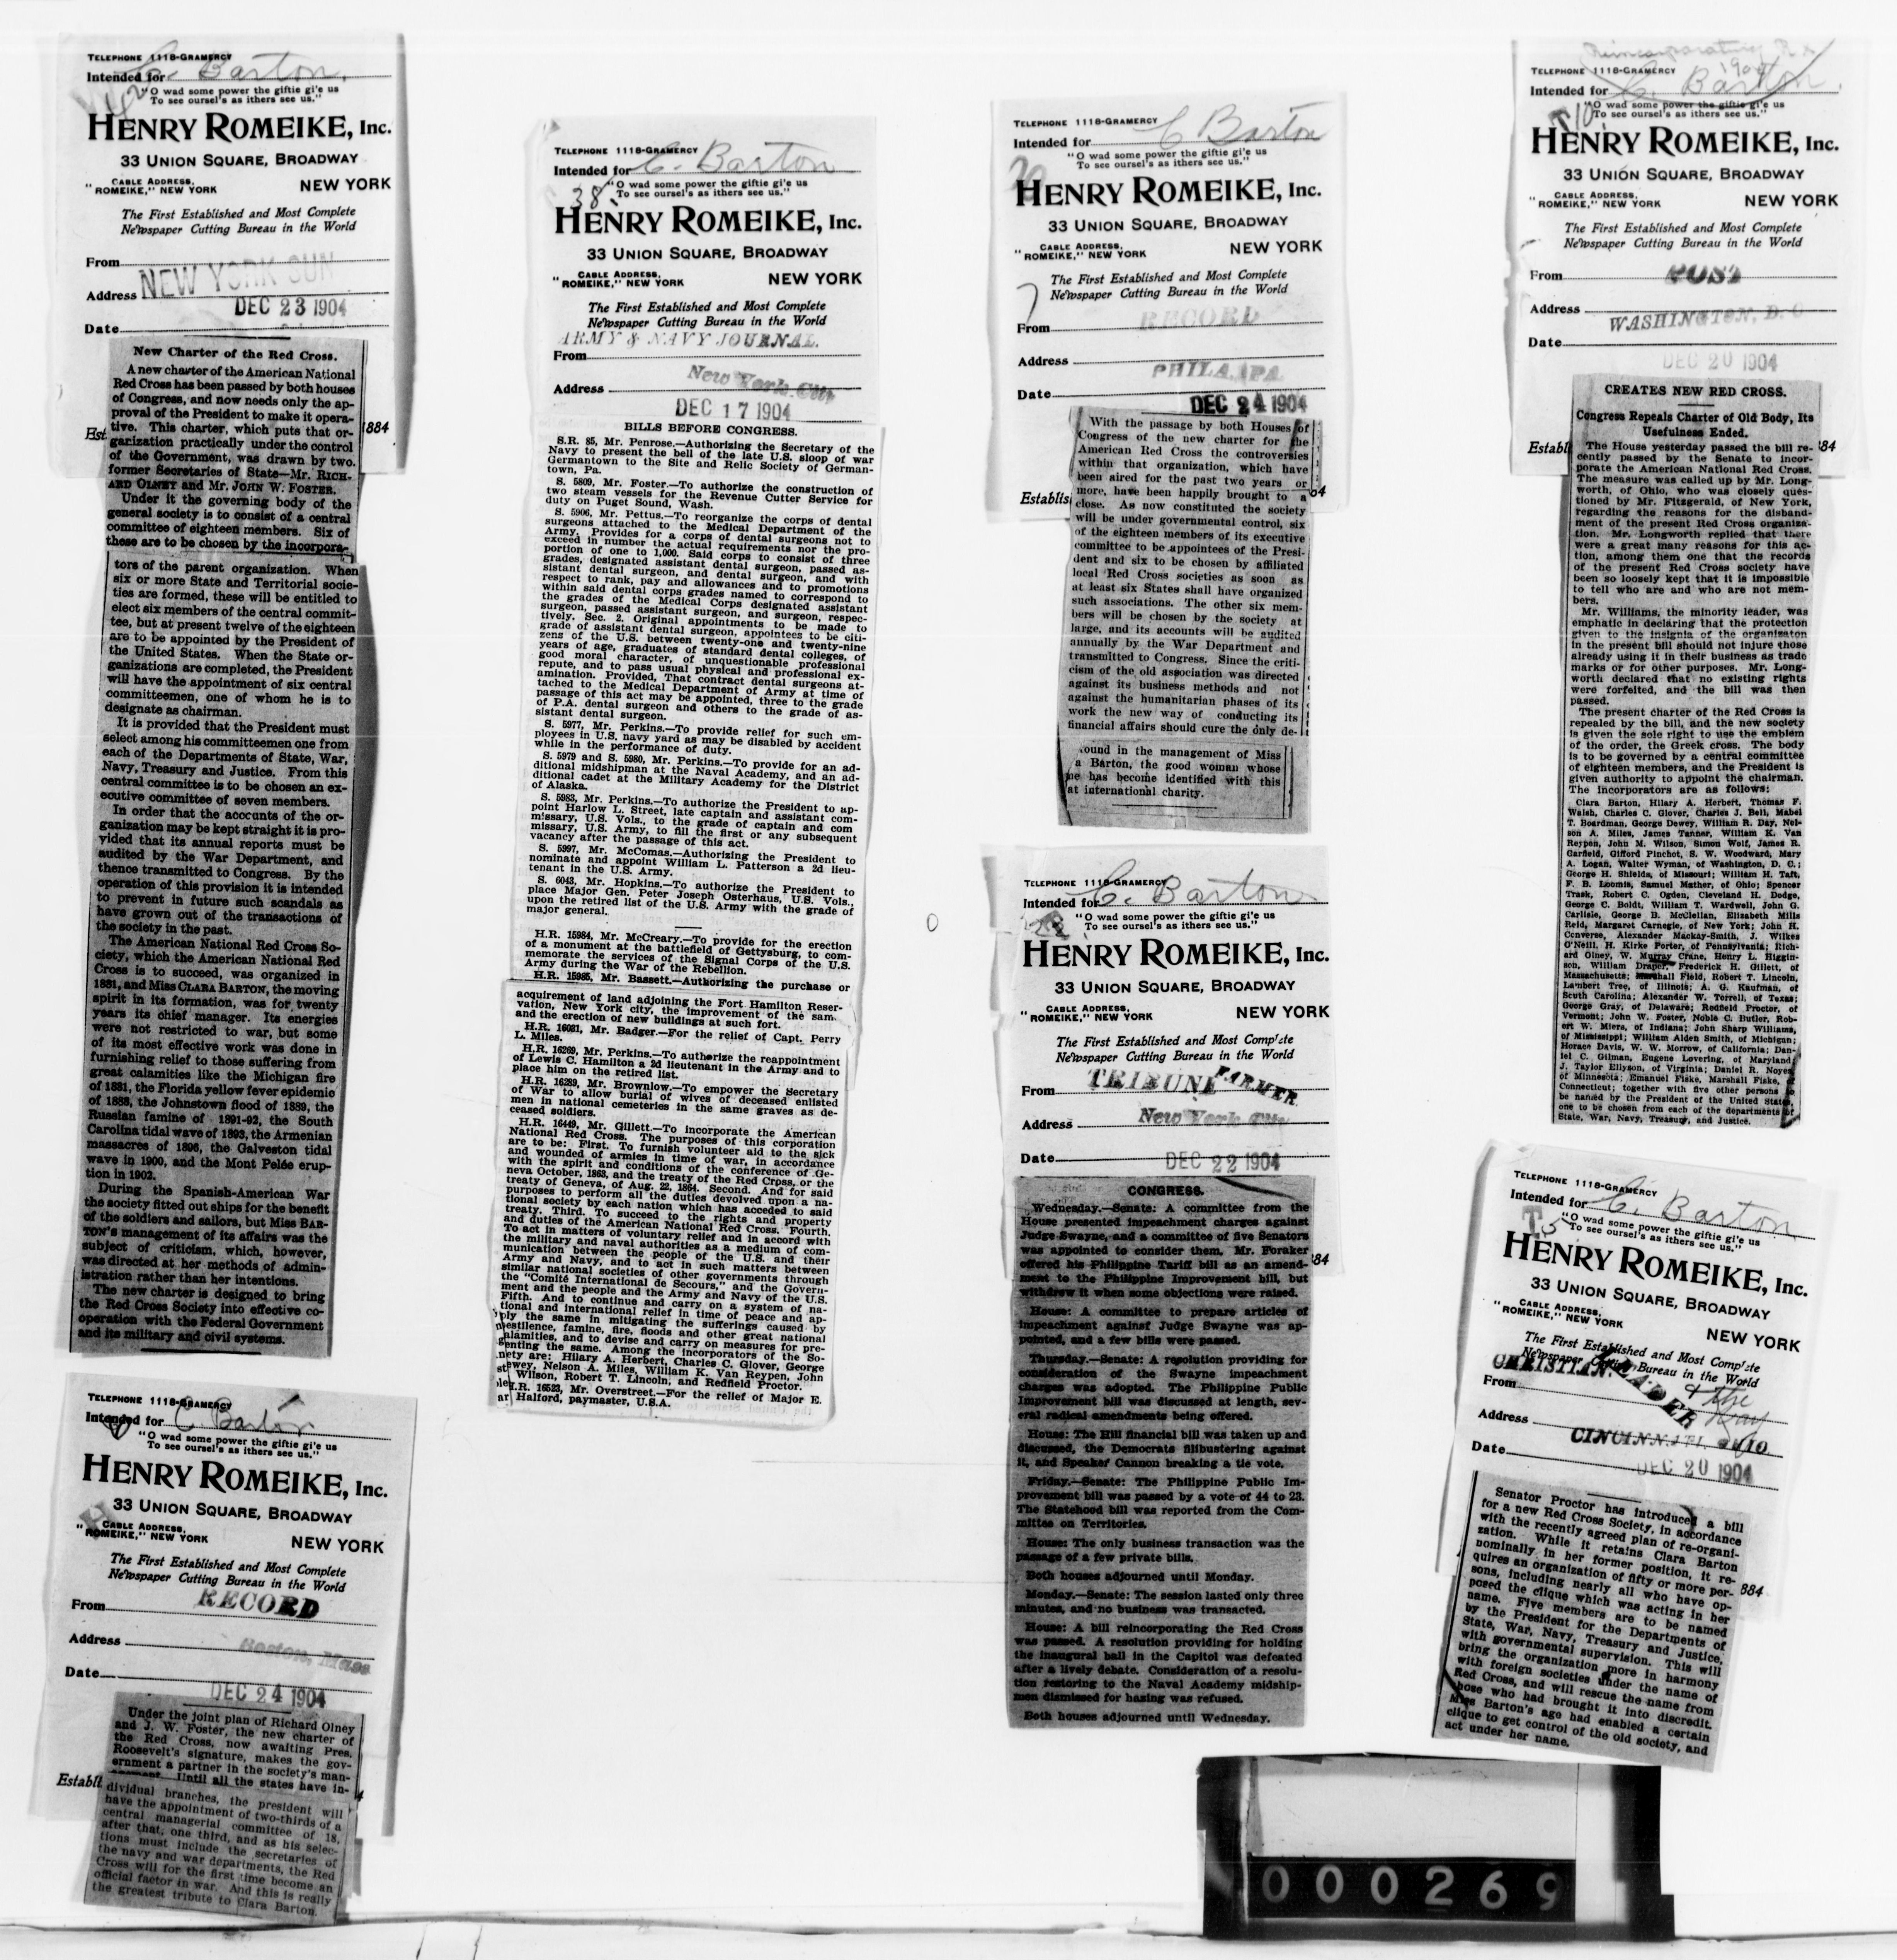 TELEPHONE 1118-GRAMERCY
Intended for C. Barton.
"O wad some power the giftie gi'e us
To see oursel's as ithers see us."
HENRY ROMEIKE, Inc.
33 UNION SQUARE, BROADWAY
CABLE ADDRESS,
"ROMEIKE," NEW YORK
NEW YORK
The First Established and Most Complete
Newspaper Cutting Bureau in the World
From
NEW YORK SUN
Address
DEC 23 1904
Date
Est 1884
New Charter of the Red Cross.
A new charter of the American National
Red Cross has been passed by both houses
of Congress, and now needs only the ap-
proval of the President to make it opera-
tive. This charter, which puts that or-
ganization practically under the control
of the Government, was drawn by two
former Secretaries of State—Mr. RICH-
ARD OLNEY and Mr. JOHN W. FOSTER.
Under it the governing body of the
general society is to consist of a central
committee of eighteen members. Six of
these are to be chosen by the incorpora-
tors of the parent organization. When
six or more State and Territorial socie-
ties are formed, these will be entitled to
elect six members of the central commit-
tee, but at present twelve of the eighteen
are to be appointed by the President of
the United States. When the State or-
ganizations are completed, the President
will have the appointment of six central
committeemen, one of whom he is to
designate as chairman.
It is provided that the President must
select among his committeemen one from
each of the Departments of State, War,
Navy, Treasury and Justice. From this
central committee is to be chosen an ex-
ecutive committee of seven members.
In order that the accounts of the or-
ganization may be kept straight it is pro-
vided that its annual reports must be
audited by the War Department, and
thence transmitted to Congress. By the
operation of this provision it is intended
to prevent in future such scandals as
have grown out of the transactions of
the society in the past.
The American National Red Cross So-
ciety, which the American National Red
Cross is to succeed, was organized in
1881, and Miss CLARA BARTON, the moving
spirit in its formation, was for twenty
years its chief manager. Its energies
were not restricted to war, but some
of its most effective work was done in
furnishing relief to those suffering from
great calamities like the Michigan fire
of 1881, the Florida yellow fever epidemic
of 1888, the Johnstown flood of 1889, the
Russian famine of 1891-92, the South
Carolina tidal wave of 1893, the Armenian
massacres of 1896, the Galveston tidal
wave in 1900, and the Mont Pelée erup-
tion in 1902.
During the Spanish-American War
the society fitted out ships for the benefit
of the soldiers and sailors, but Miss BAR-
TON'S management of its affairs was the
subject of criticism, which, however,
was directed at her methods of admin-
istration rather than her intentions.
The new charter is designed to bring
the Red Cross Society into effective co-
operation with the Federal Government
and its military and civil systems.
TELEPHONE 1118-GRAMERCY
Intended for C. Barton
"O wad some power the giftie gi'e us
To see oursel's as ithers see us."
HENRY ROMEIKE, Inc.
33 UNION SQUARE, BROADWAY
CABLE ADDRESS,
"ROMEIKE," NEW YORK
NEW YORK
The First Established and Most Complete
Newspaper Cutting Bureau in the World
From RECORD
Address Boston, Mass
Date
DEC 24 1904
Under the joint plan of Richard Olney
and J. W. Foster, the new charter of
the Red Cross, now awaiting Pres.
Roosevelt's signature, makes the gov-
ernment a partner in the society's man-
agement. Until all the states have in-
Establ 4
dividual branches, the president will
have the appointment of two-thirds of a
central managerial committee of 18,
after that, one third, and as his selec-
tions must include the secretaries of
the navy and war departments, the Red
Cross will for the first time become an
official factor in war. And this is really
the greatest tribute to Clara Barton.
TELEPHONE 1118-GRAMERCY
Intended for C. Barton
38
"O wad some power the giftie gi'e us
To see oursel's as ithers see us."
HENRY ROMEIKE, Inc.
33 UNION SQUARE, BROADWAY
CABLE ADDRESS,
"ROMEIKE," NEW YORK
NEW YORK
The First Established and Most Complete
Newspaper Cutting Bureau in the World
ARMY & NAVY JOURNAL.
From
Address New York City
DEC 17 1904
BILLS BEFORE CONGRESS.
S.R. 85, Mr. Penrose.—Authorizing the Secretary of the
Navy to present the bell of the late U.S. sloop of war
Germantown to the Site and Relic Society of German-
town, Pa.
S. 5809, Mr. Foster.—To authorize the construction of
two steam vessels for the Revenue Cutter Service for
duty on Puget Sound, Wash.
S. 5906, Mr. Pettus.—To reorganize the corps of dental
surgeons attached to the Medical Department of the
Army. Provides for a corps of dental surgeons not to
exceed in number the actual requirements nor the pro-
portion of one to 1,000. Said corps to consist of three
grades, designated assistant dental surgeon, passed as-
sistant dental surgeon, and dental surgeon, and with
respect to rank, pay and allowances and to promotions
within said dental corps grades named to correspond to
the grades of the Medical Corps designated assistant
surgeon, passed assistant surgeon, and surgeon, respec-
tively. Sec. 2. Original appointments to be made to
grade of assistant dental surgeon, appointees to be citi-
zens of the U.S. between twenty-one and twenty-nine
years of age, graduates of standard dental colleges, of
good moral character, of unquestionable professional
repute, and to pass usual physical and professional ex-
amination. Provided, That contract dental surgeons at-
tached to the Medical Department of Army at time of
passage of this act may be appointed, three to the grade
of P.A. dental surgeon and others to the grade of as-
sistant dental surgeon.
S. 5977, Mr. Perkins.—To provide relief for such em-
ployees in U.S. navy yard as may be disabled by accident
while in the performance of duty.
S. 5979 and S. 5980, Mr. Perkins.—To provide for an ad-
ditional midshipman at the Naval Academy, and an ad-
ditional cadet at the Military Academy for the District
of Alaska.
S. 5983, Mr. Perkins.—To authorize the President to ap-
point Harlow L. Street, late captain and assistant com-
missary, U.S. Vols., to the grade of captain and com
missary, U.S. Army, to fill the first or any subsequent
vacancy after the passage of this act.
S. 5997, Mr. McComas.—Authorizing the President to
nominate and appoint William L. Patterson a 2d lieu-
tenant in the U.S. Army.
S. 6043, Mr. Hopkins.—To authorize the President to
place Major Gen. Peter Joseph Osterhaus, U.S. Vols.,
upon the retired list of the U.S. Army with the grade of
major general.
H.R. 15984, Mr. McCreary.—To provide for the erection
of a monument at the battlefield of Gettysburg, to com-
memorate the services of the Signal Corps of the U.S.
Army during the War of the Rebellion.
H.R. 15985, Mr. Bassett.—Authorizing the purchase or
acquirement of land adjoining the Fort Hamilton Reser-
vation, New York city, the improvement of the sam.
and the erection of new buildings at such fort.
H.R. 16081, Mr. Badger.—For the relief of Capt. Perry
L. Miles.
H.R. 16269, Mr. Perkins.—To authorize the reappointment
of Lewis C. Hamilton a 2d lieutenant in the Army and to
place him on the retired list.
H.R. 16289, Mr. Brownlow.—To empower the Secretary
of War to allow burial of wives of deceased enlisted
men in national cemeteries in the same graves as de-
ceased soldiers.
H.R. 16449, Mr. Gillett.—To incorporate the American
National Red Cross. The purposes of this corporation
are to be: First. To furnish volunteer aid to the sick
and wounded of armies in time of war, in accordance
with the spirit and conditions of the conference of Ge-
neva October, 1863, and the treaty of the Red Cross, or the
treaty of Geneva, of Aug. 22, 1864. Second. And for said
purposes to perform all the duties devolved upon a na-
tional society by each nation which has acceded to said
treaty. Third. To succeed to the rights and property
and duties of the American National Red Cross. Fourth.
To act in matters of voluntary relief and in accord with
the military and naval authorities as a medium of com-
munication between the people of the U.S. and their
Army and Navy, and to act in such matters between
similar national societies of other governments through
the "Comité International de Secours," and the Govern-
ment and the people and the Army and Navy of the U.S.
Fifth. And to continue and carry on a system of na-
tional and international relief in time of peace and ap-
ply the same in mitigating the sufferings caused by
pestilence, famine, fire, floods and other great national
alamities, and to devise and carry on measures for pre-
enting the same. Among the incorporators of the So-
ety are: Hilary A. Herbert, Charles C. Glover, George
ewey, Nelson A. Miles, William K. Van Reypen, John
Wilson, Robert T. Lincoln, and Redfield Proctor.
I.R. 16523, Mr. Overstreet.—For the relief of Major E.
Halford, paymaster, U.S.A.
TELEPHONE 1118-GRAMERCY
Intended for C Barton
20
"O wad some power the giftie gi'e us
To see oursel's as ithers see us."
HENRY ROMEIKE, Inc.
33 UNION SQUARE, BROADWAY
CABLE ADDRESS,
"ROMEIKE," NEW YORK
NEW YORK
The First Established and Most Complete
Newspaper Cutting Bureau in the World
From RECORD
Address PHILA, PA
Date
DEC 24 1904
With the passage by both Houses of
Congress of the new charter for the
American Red Cross the controversies
within that organization, which have
been aired for the past two years or
more, have been happily brought to a
Establis
close. As now constituted the society
will be under governmental control, six
of the eighteen members of its executive
committee to be appointees of the Presi-
dent and six to be chosen by affiliated
local Red Cross societies as soon as
at least six States shall have organized
such associations. The other six mem-
bers will be chosen by the society at
large, and its accounts will be audited
annually by the War Department and
transmitted to Congress. Since the criti-
cism of the old association was directed
against its business methods and not
against the humanitarian phases of its
work the new way of conducting its
financial affairs should cure the only de-
ound in the management of Miss
a Barton, the good woman whose
ne has become identified with this
at international charity.
TELEPHONE 1118-GRAMERCY
Intended for C. Barton
"O wad some power the giftie gi'e us
To see oursel's as ithers see us."
HENRY ROMEIKE, Inc.
33 UNION SQUARE, BROADWAY
CABLE ADDRESS,
"ROMEIKE," NEW YORK
NEW YORK
The First Established and Most Complete
Newspaper Cutting Bureau in the World
From TRIBUNE FARMER
Address New York City
Date DEC 22 1904
CONGRESS.
Wednesday.—Senate: A committee from the
House presented impeachment charges against
Judge Swayne, and a committee of five Senators
was appointed to consider them. Mr. Foraker
offered his Philippine Tariff bill as an amend-
ment to the Philippine Improvement bill, but
withdrew it when some objections were raised.
'84
House: A committee to prepare articles of
impeachment against Judge Swayne was ap-
pointed, and a few bills were passed.
Thursday.—Senate: A resolution providing for
consideration of the Swayne impeachment
charges was adopted. The Philippine Public
Improvement bill was discussed at length, sev-
eral radical amendments being offered.
House: The Hill financial bill was taken up and
discussed, the Democrats filibustering against
it, and Speaker Cannon breaking a tie vote.
Friday.—Senate: The Philippine Public Im-
provement bill was passed by a vote of 44 to 23.
The Statehood bill was reported from the Com-
mittee on Territories.
House: The only business transaction was the
passage of a few private bills.
Both houses adjourned until Monday.
Monday.—Senate: The session lasted only three
minutes, and no business was transacted.
House: A bill reincorporating the Red Cross
was passed. A resolution providing for holding
the inaugural ball in the Capitol was defeated
after a lively debate. Consideration of a resolu-
tion restoring to the Naval Academy midship-
men dismissed for hazing was refused.
Both houses adjourned until Wednesday.
Reincorporating R x
1904
TELEPHONE 1118-GRAMERCY
Intended for C. Barton.
"O wad some power the giftie gi'e us
To see oursel's as ithers see us."
HENRY ROMEIKE, Inc.
33 UNION SQUARE, BROADWAY
CABLE ADDRESS,
"ROMEIKE," NEW YORK
NEW YORK
The First Established and Most Complete
Newspaper Cutting Bureau in the World
From POST
Address WASHINGTON, D. C
Date
DEC 20 1904
CREATES NEW RED CROSS.
Congress Repeals Charter of Old Body, Its
Usefulness Ended.
Establ '84
The House yesterday passed the bill re-
cently passed by the Senate to incor-
porate the American National Red Cross.
The measure was called up by Mr. Long-
worth, of Ohio, who was closely ques-
tioned by Mr. Fitzgerald, of New York,
regarding the reasons for the disband-
ment of the present Red Cross organiza-
tion. Mr. Longworth replied that there
were a great many reasons for this ac-
tion, among them one that the records
of the present Red Cross society have
been so loosely kept that it is impossible
to tell who are and who are not mem-
bers.
Mr. Williams, the minority leader, was
emphatic in declaring that the protection
given to the insignia of the organizaton
in the present bill should not injure those
already using it in their business as trade
marks or for other purposes. Mr. Long-
worth declared that no existing rights
were forfeited, and the bill was then
passed.
The present charter of the Red Cross is
repealed by the bill, and the new society
is given the sole right to use the emblem
of the order, the Greek cross. The body
is to be governed by a central committee
of eighteen members, and the President is
given authority to appoint the chairman.
The incorporators are as follows:
Clara Barton, Hilary A. Herbert, Thomas F.
Walsh, Charles C. Glover, Charles J. Bell, Mabel
T. Boardman, George Dewey, William R. Day, Nel-
son A. Miles, James Tanner, William K. Van
Reypen, John M. Wilson, Simon Wolf, James R.
Garfield, Gifford Pinchot, S. W. Woodward, Mary
A. Logan, Walter Wyman, of Washington, D. C.;
George H. Shields, of Missouri; William H. Taft,
F. B. Loomis, Samuel Mather, of Ohio; Spencer
Trask, Robert C. Ogden, Cleveland H. Dodge,
George C. Boldt, William T. Wardwell, John G.
Carlisle, George B. McClellan, Elizabeth Mills
Reid, Margaret Carnegie, of New York; John H.
Converse, Alexander Mackay-Smith, J. Wilkes
O'Neill, H. Kirke Porter, of Pennsylvania; Rich-
ard Olney, W. Murray Crane, Henry L. Higgin-
son, William Draper, Frederick H. Gillett, of
Massachusetts; Marshall Field, Robert T. Lincoln,
Lambert Tree, of Illinois; A. G. Kaufman, of
South Carolina; Alexander W. Terrell, of Texas;
George Gray, of Delaware; Redfield Proctor, of
Vermont; John W. Foster, Noble C. Butler, Rob-
ert W. Miers, of Indiana; John Sharp Williams,
of Mississippi; William Alden Smith, of Michigan;
Horace Davis, W. W. Morrow, of California; Dan-
iel C. Gilman, Eugene Levering, of Maryland;
J. Taylor Ellyson, of Virginia; Daniel R. Noyes,
of Minnesota; Emanuel Fiske, Marshall Fiske, of
Connecticut; together with five other persons to
be named by the President of the United States,
one to be chosen from each of the departments of
State, War, Navy, Treasury, and Justice.
TELEPHONE 1118-GRAMERCY
Intended for C. Barton
"O wad some power the giftie gi'e us
To see oursel's as ithers see us."
HENRY ROMEIKE, Inc.
33 UNION SQUARE, BROADWAY
CABLE ADDRESS,
"ROMEIKE," NEW YORK
NEW YORK
The First Established and Most Complete
Newspaper Cutting Bureau in the World
CHRISTIAN LEADER & the Way
From
Address CINCINNATI, OHIO
Date
DEC 20 1904
Senator Proctor has introduced a bill
for a new Red Cross Society, in accordance
with the recently agreed plan of re-organi-
zation. While it retains Clara Barton
nominally in her former position, it re-
quires an organization of fifty or more per-
884
sons, including nearly all who have op-
posed the clique which was acting in her
name. Five members are to be named
by the President for the Departments of
State, War, Navy, Treasury and Justice,
with governmental supervision. This will
bring the organization more in harmony
with foreign societies under the name of
Red Cross, and will rescue the name from
hose who had brought it into discredit.
Miss Barton's age had enabled a certain
clique to get control of the old society, and
act under her name.
000269